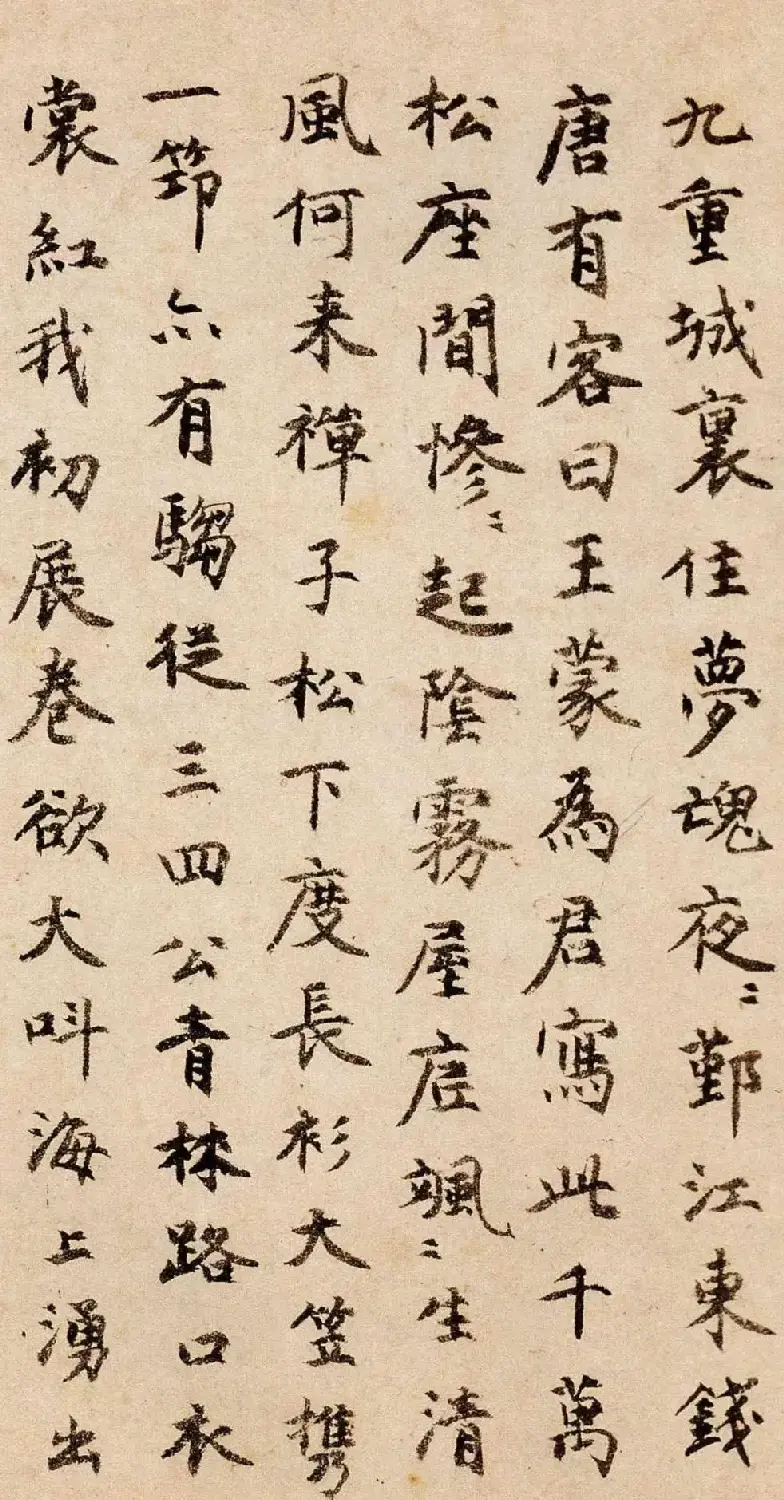 九重城裏住夢魂夜〻鄞江東錢
唐有客曰王蒙為君寫此千萬
松座間慘〻起陰霧屋底颯〻生清
風何来禪子松下度長衫大笠携
一笻亦有騶從三四公青林路口衣
裳紅我初展卷欲大叫海上湧出